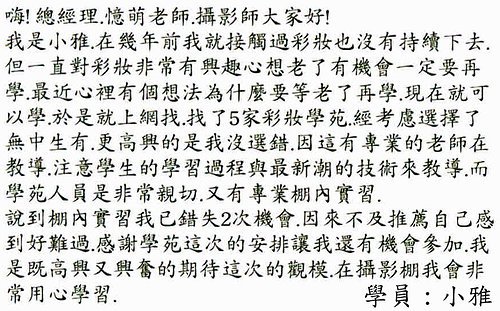 嗨! 總經理.憶萌老師.攝影師大家好!
我是小雅.在幾年前我就接觸過彩妝也沒有持續下去.
但一直對彩妝非常有興趣心想老了有機會一定要再
學.最近心裡有個想法為什麼要等老了再學.現在就可
以學.於是就上網找.找了5家彩妝學苑.經考慮選擇了
無中生有.更高興的是我沒選錯.因這有專業的老師在
教導.注意學生的學習過程與最新潮的技術來教導.而
學苑人員是非常親切.又有專業棚內實習.
說到棚內實習我已錯失2次機會.因來不及推薦自己感
到好難過.感謝學苑這次的安排讓我還有機會參加.我
是既高興又興奮的期待這次的觀模.在攝影棚我會非
常用心學習.
學員：小雅